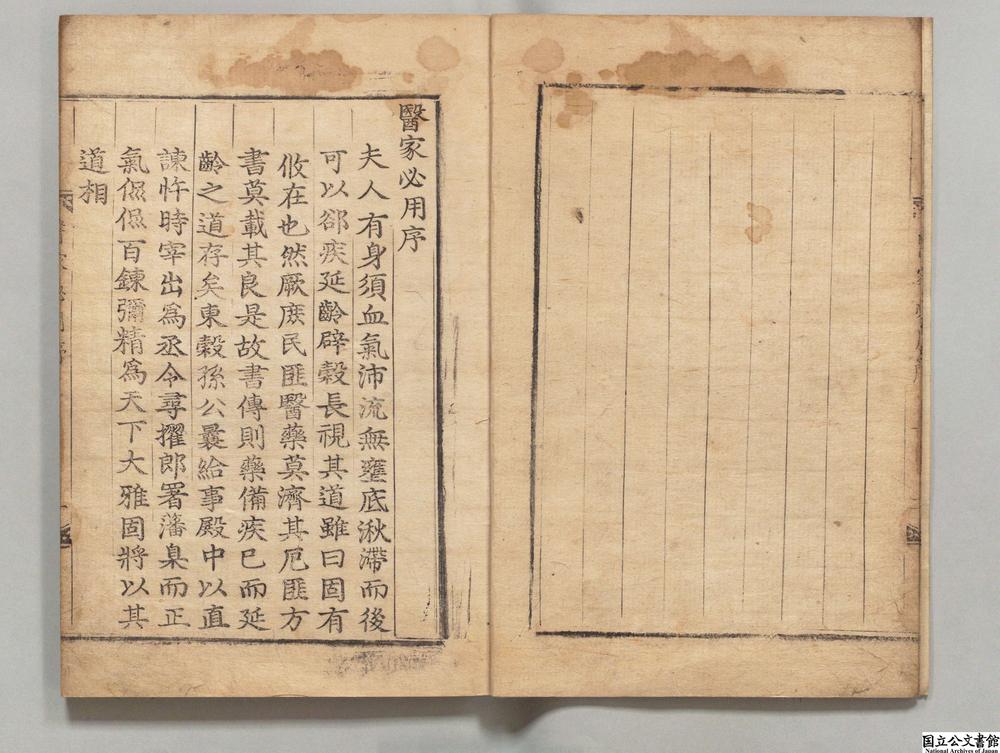 醫家必用序
夫人有身須血氣沛流無壅底湫滯而後
可以郤疾延齡辟穀長視其道雖曰固有
攸在也然厥庶民匪醫藥莫濟其厄匪方
書莫載其良是故書傳則藥備疾已而延
齡之道存矣東穀孫公曩給事殿中以直
諫忤時宰出為丞令尋擢郎署藩臬而正
氣侃侃百鍊彌精為天下大雅固將以其
道相
国立公文書館
National Archives of Japan